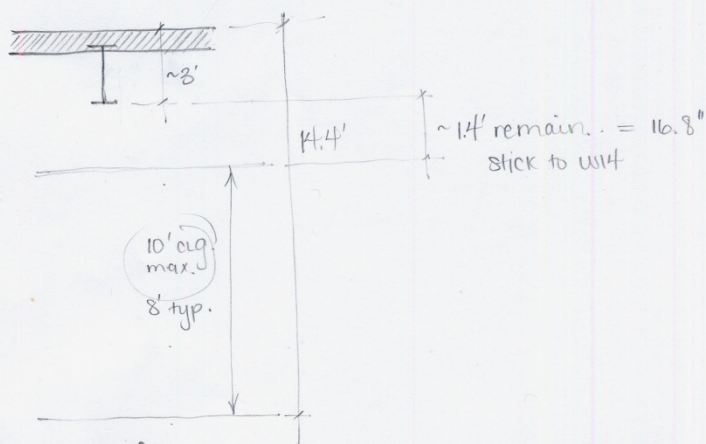 ~3'
14.4'
~1.4' remain. = 16.8"
stick to W14
10' clg.
max.
8' typ.